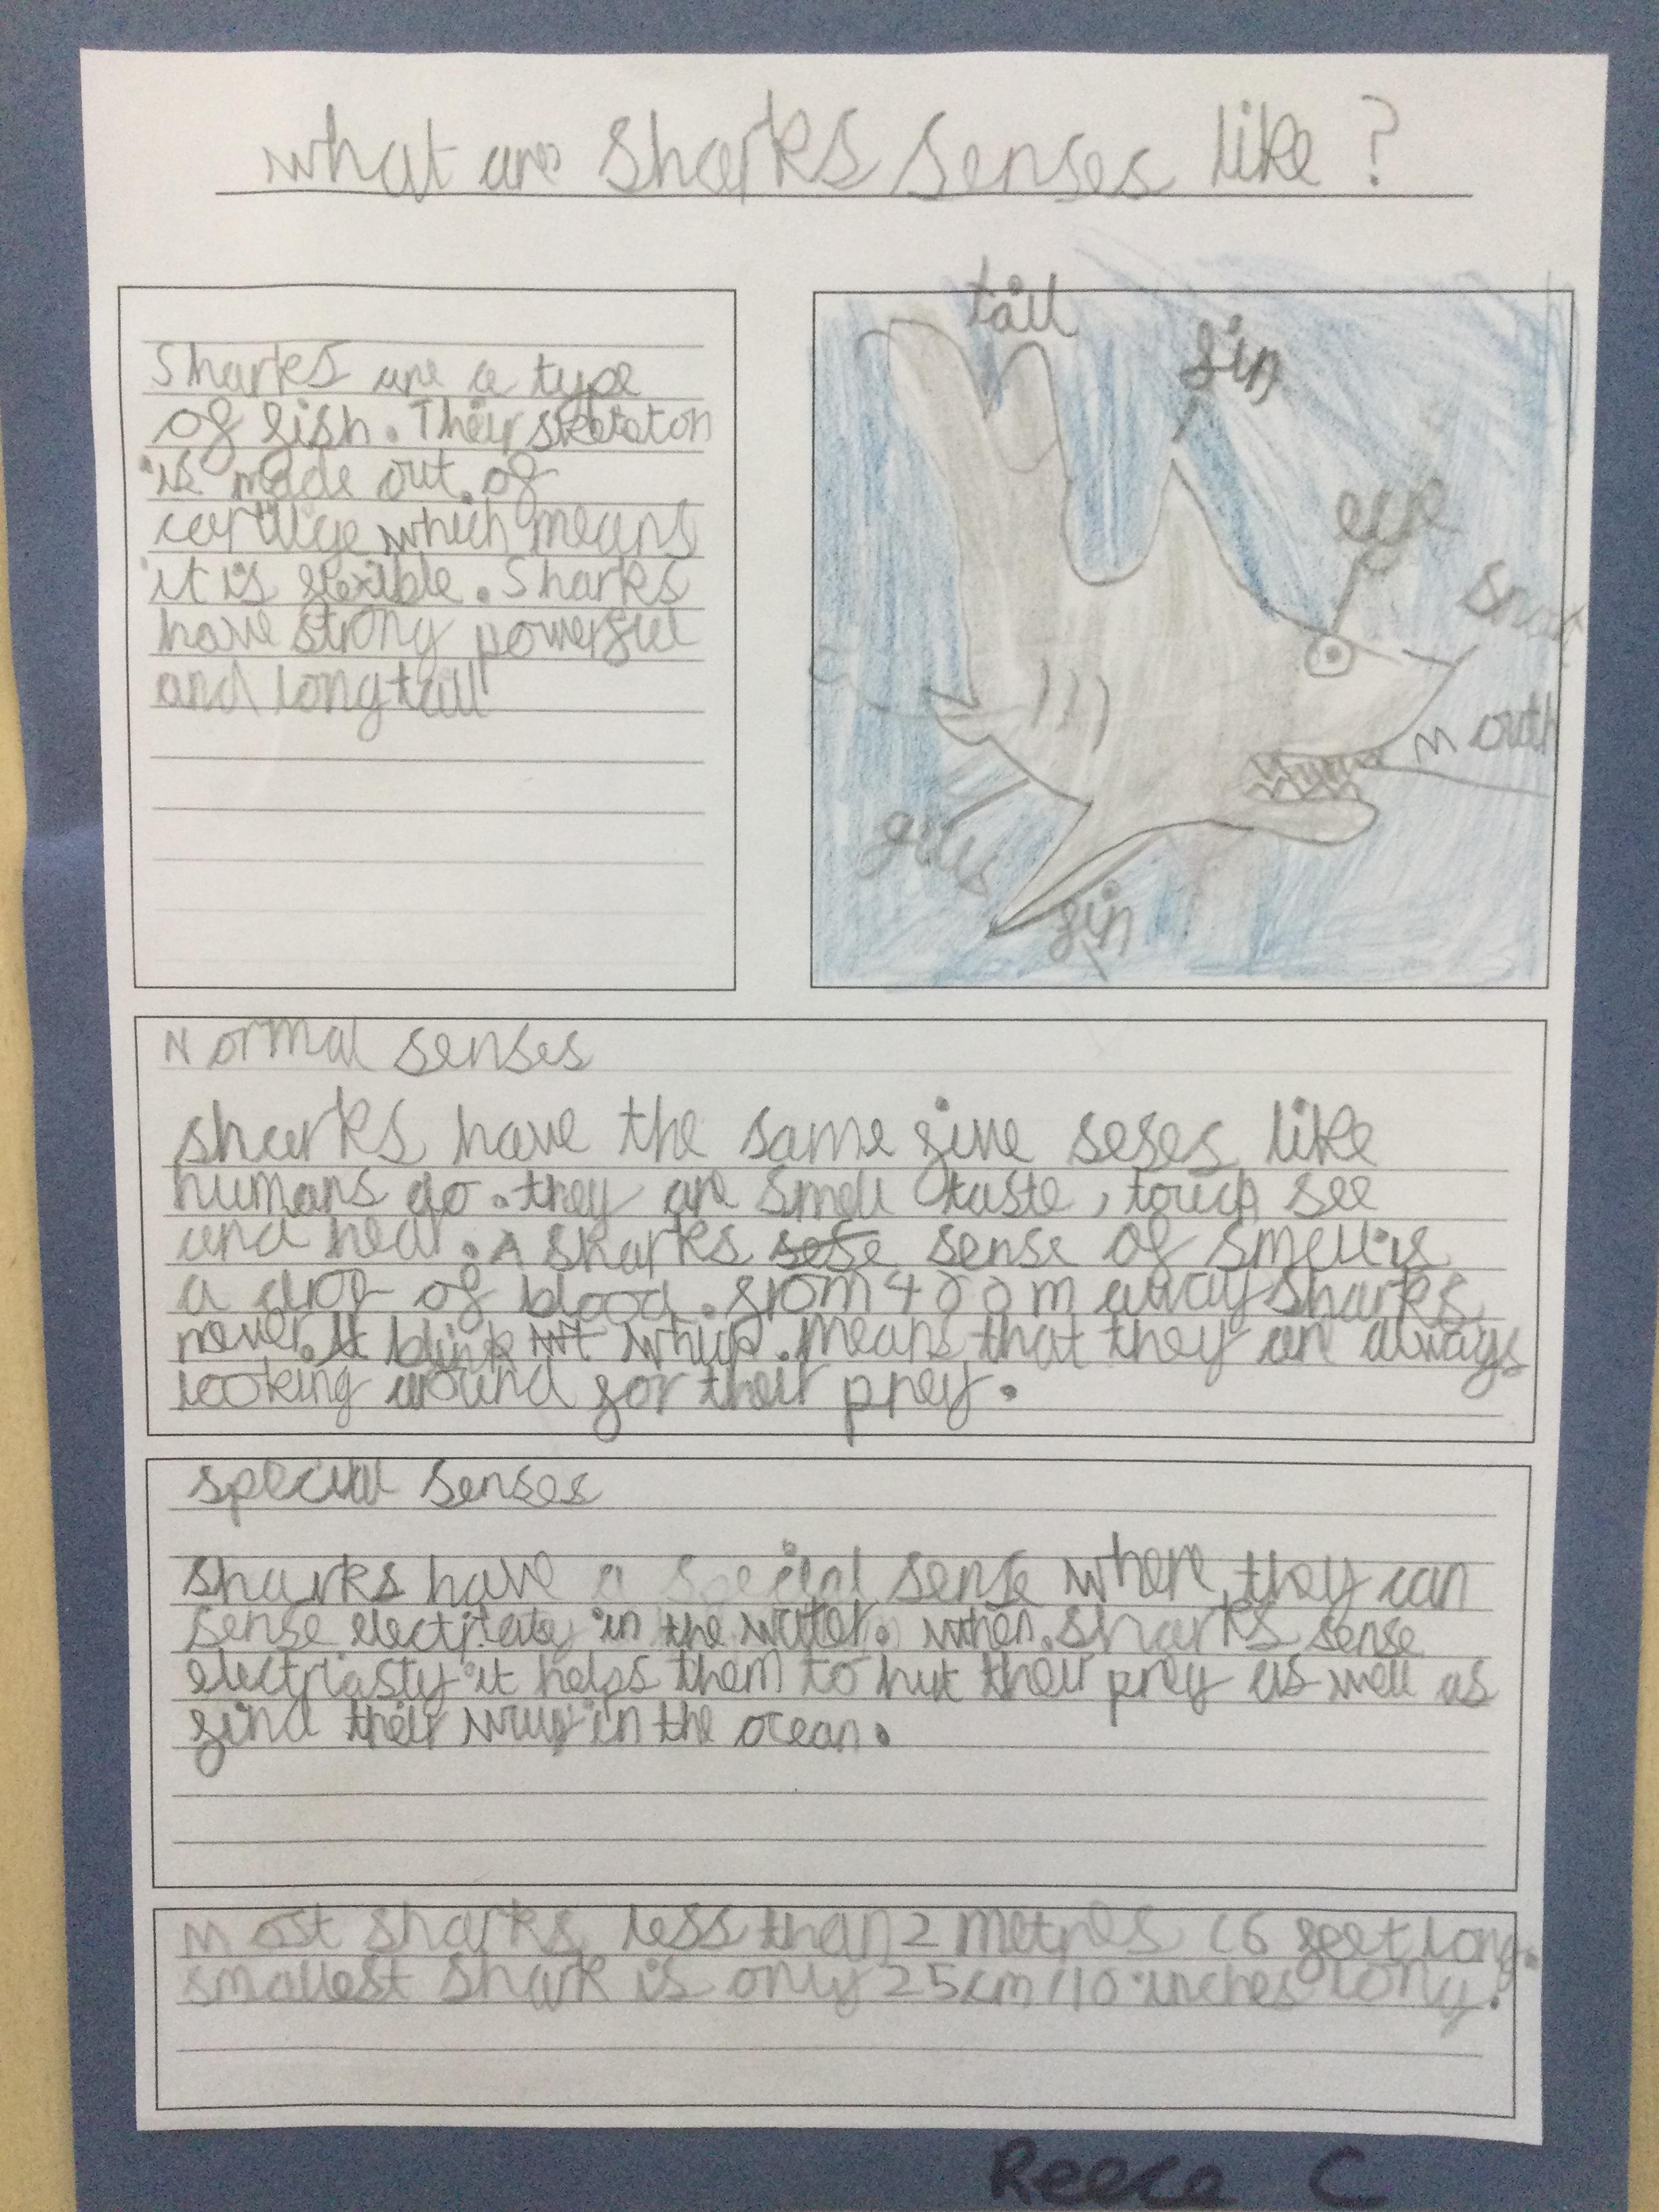 What are sharks senses like?
Sharks are a type
of fish. Their skeleton
is made out of
cartilige which means
it is flexible. Sharks
have strong powerful
and long tail
tail
fin
eye
mouth
gills
fin
Normal senses
sharks have the same five seses like
humans do. they are smell taste, touch see
and hear. A sharks sense of smell is
a drop of blood. from 400m away sharks
never. blink which. means that they are always
looking around for their prey.
special senses
sharks have a special sense where they can
sense in the water. when. sharks sense
electriasty it helps them to hut their prey as well as
find their way in the ocean.
Most sharks less than 2 metres (6 feet long.
smallest shark is only 25cm (10 inches long.
Reece C